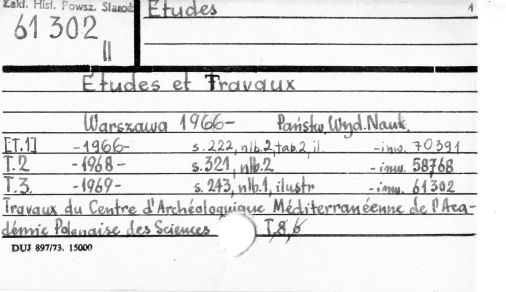 Zakł. Hist. Powsz. Staroż
61 302
II
Etudes
1
Etudes et Travaux
Warszawa 1966- Państw. Wyd. Nauk.
[T.1] -1966- s. 222, nlb. 2, tab. 2, il. -inw. 70391
T.2 -1968- s. 321, nlb. 2 -inw. 58768
T.3. -1969- s. 243, nlb. 1, ilustr -inw. 61302
Travaux du Centre d'Archéologuique Méditerranéenne de l'Aca-
démie Polonaise des Sciences T. 8, 6
DUJ 897/73. 15000